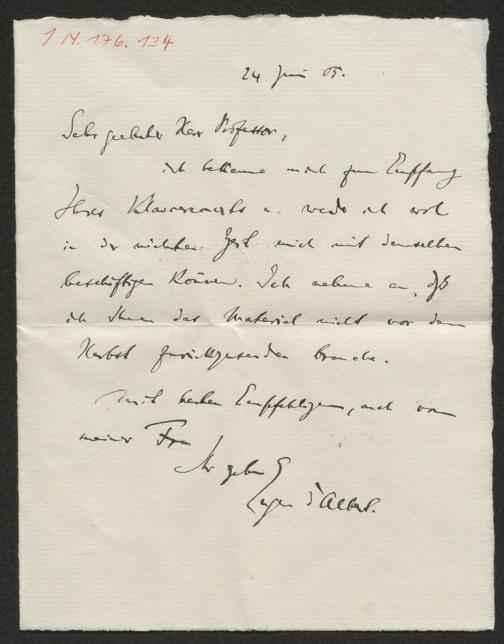 I N. 176.134
24 Juni 05.
Sehr geehrter Herr Professor,
ich bekenne mich zum Empfang
Ihres Klavierconcerts u. werde ich wohl
in der nächsten Zeit mich mit demselben
beschäftigen können. Ich nehme an, daß
ich Ihnen das Material nicht vor dem
Herbst zurückzusenden brauche.
Mit besten Empfehlungen, auch von
meiner Frau
Ihr ergeb.
Eugen d'Albert.